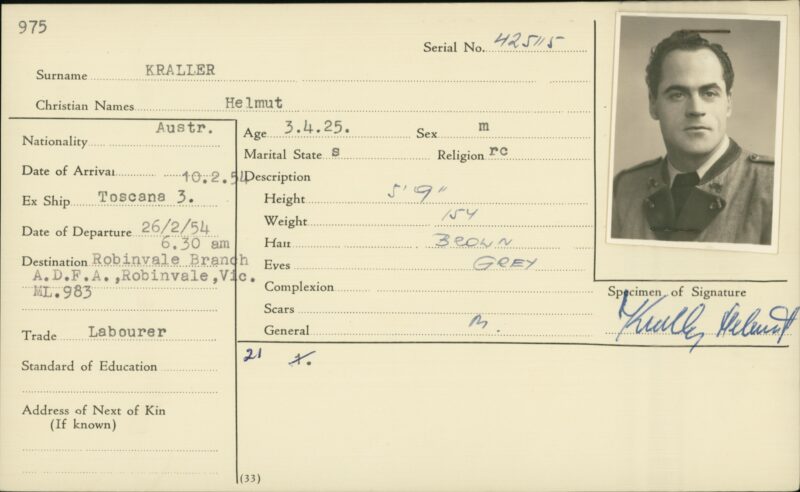 975
Serial No. 425115
Surname KRALLER
Christian Names Helmut
Nationality Austr.
Date of Arrival 10.2.54
Ex Ship Toscana 3.
Date of Departure 26/2/54
6.30 am
Destination Robinvale Branch
A.D.F.A.,Robinvale,Vic.
ML.983
Trade Labourer
Standard of Education
Address of Next of Kin
(If known)
Age 3.4.25. Sex m
Marital State s Religion rc
Description
Height 5' 9"
Weight 154
Hair BROWN
Eyes GREY
Complexion
Scars
General M.
21 X.
(33)
Specimen of Signature
Kraller Helmut